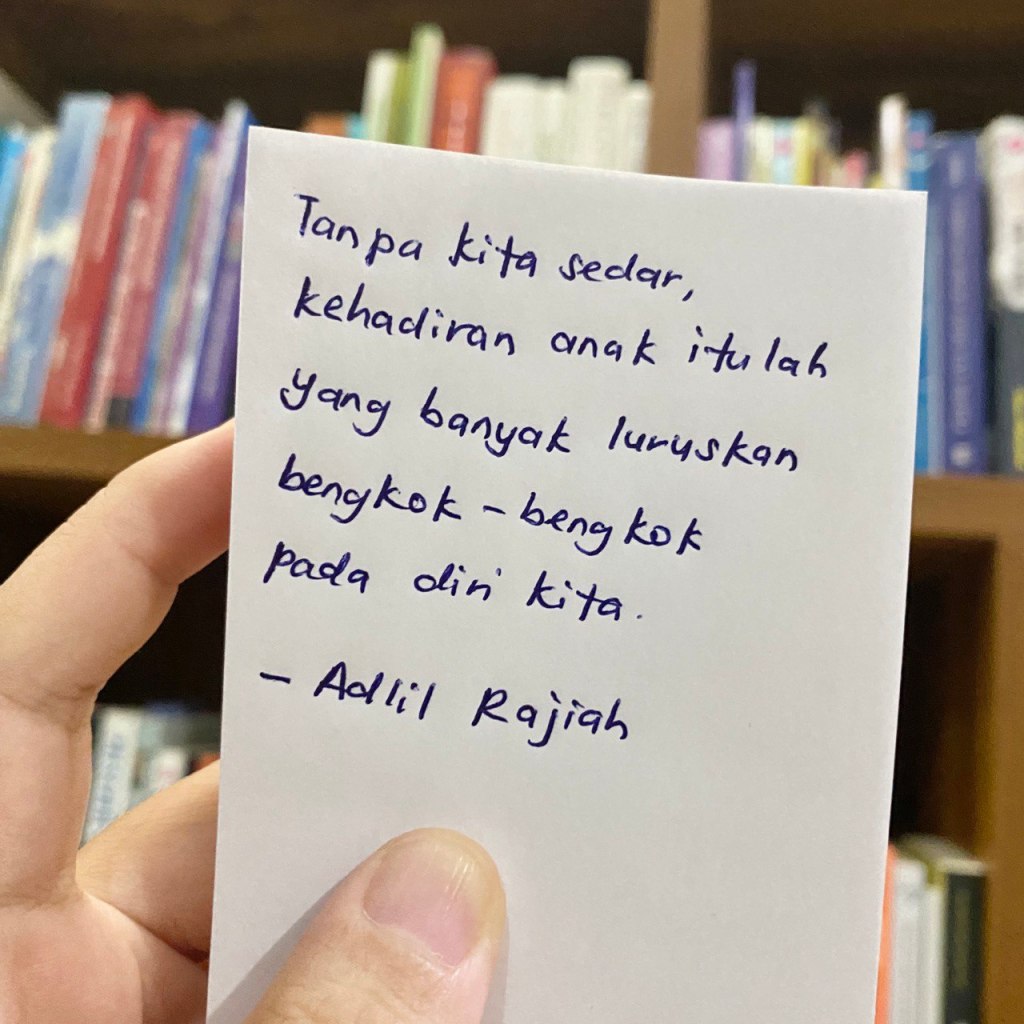 Tanpa kita sedar,
kehadiran anak itulah
yang banyak luruskan
bengkok-bengkok
pada diri kita.
- Adlil Rajiah